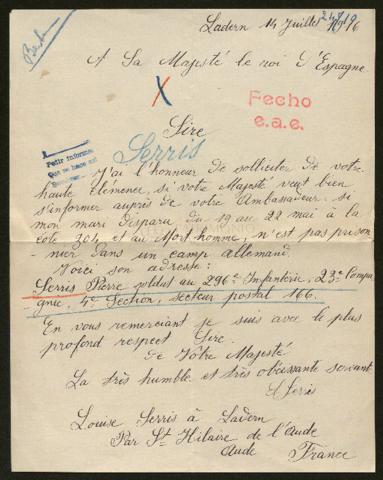 Ladern 14 Juillet 1916
24719
A Sa Majesté le roi d'Espagne
X
Fecho
e.a.e.
Sire
Serris
Pedir informe
J'ai l'honneur de solliciter de votre
haute clémence, si votre Majesté veut bien
s'informer auprès de votre Ambassadeur, si
mon mari disparu du 19 au 22 mai à la
côte 304, et au Mort homme, n'est pas prison
-nier dans un camp allemand.
Voici son adresse:
Serris Pierre soldat au 296e Infanterie, 23e Compa
gnie, 4e Section, secteur postal 166.
En vous remerciant je suis avec le plus
profond respect Sire.
De Vôtre Majesté
La très humble et très obéissante servante
Serris
Louise Serris à Ladern
Par St Hilaire de l'Aude
Aude France